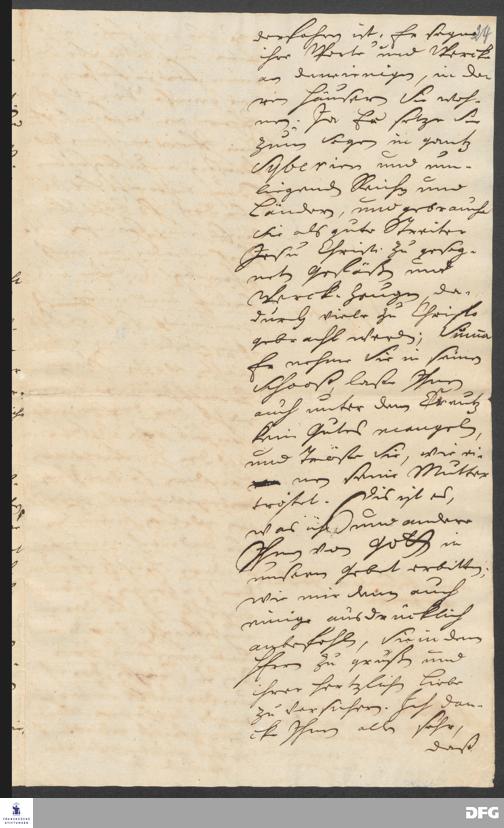 24
derfahren ist. Er segne
ihre Worte und Werck
an denenienigen, in de-
ren Häusern Sie woh-
nen. Ja Er setze Sie
zum Segen in gantz
Syberien und um-
liegenden Reichen und
Ländern, und gebrauche
Sie als gute Streiter
Jesu Christi zu geseg-
neten Gefäßen und
Werck-Zeugen, da-
durch viele zu Christo
gebracht werden; Summa
Er nehme Sie in seinen
Schooß, laße Ihnen
auch unter dem Creutz
kein Gutes mangeln,
und tröste Sie, wie ei-
nen seine Mutter
tröstet. Dis ist es,
was ich und andere
Ihnen von Gott in
unserm Gebet erbitten;
wie mir denn auch
einige ausdrücklich
anbefohlen, Sie in dem
Herrn zu grüßen und
ihrer hertzlichen Liebe
zu versichern. Ich dan-
cke Ihnen allen sehr,
daß
FRANCKESCHE
STIFTUNGEN
DFG